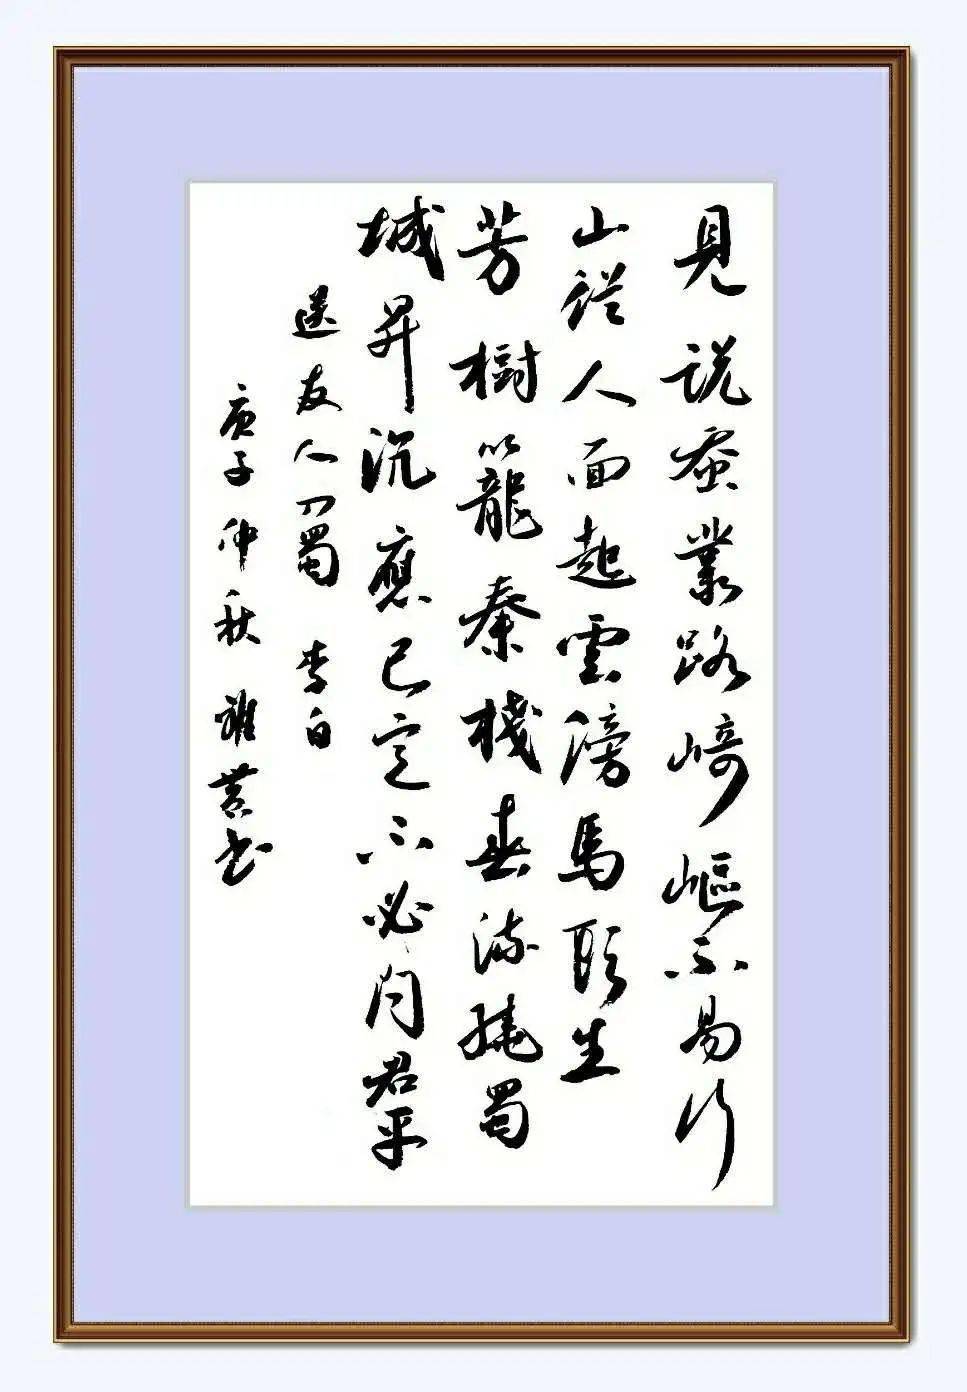 見說蚕叢路崎嶇不易行
山從人面起雲傍馬頭生
芳樹籠秦棧春流繞蜀
城昇沉應已定不必問君平
送友人入蜀 李白
庚子仲秋 雅书